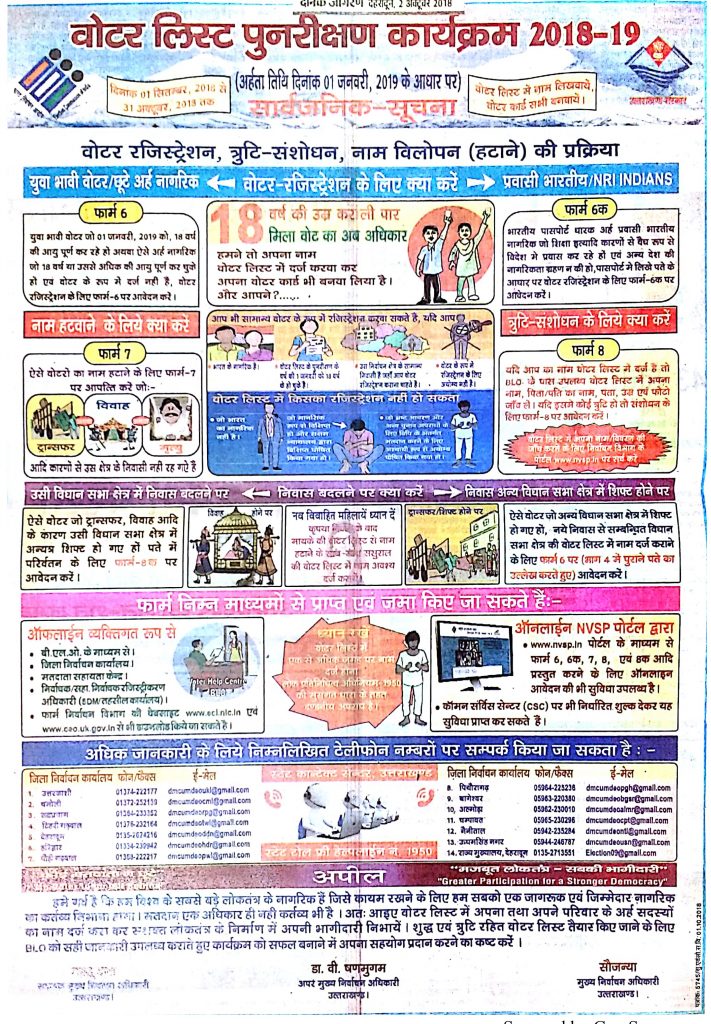 दैनिक जागरण देहरादून, 2 अक्टूबर 2018
वोटर लिस्ट पुनरीक्षण कार्यक्रम 2018-19
दिनांक 01 सितम्बर, 2018 से
31 अक्टूबर, 2018 तक
(अर्हता तिथि दिनांक 01 जनवरी, 2019 के आधार पर)
सार्वजनिक-सूचना
वोटर लिस्ट में नाम लिखवायें,
वोटर कार्ड सभी बनवायें।
उत्तराखण्ड सरकार
वोटर रजिस्ट्रेशन, त्रुटि-संशोधन, नाम विलोपन (हटाने) की प्रक्रिया
युवा भावी वोटर/छूटे अर्ह नागरिक
वोटर-रजिस्ट्रेशन के लिए क्या करें
प्रवासी भारतीय/NRI INDIANS
फार्म 6
युवा भावी वोटर जो 01 जनवरी, 2019 को, 18 वर्ष
की आयु पूर्ण कर रहे हो अथवा ऐसे अर्ह नागरिक
जो 18 वर्ष या उससे अधिक की आयु पूर्ण कर चुके
हो एवं वोटर के रूप में दर्ज नहीं है, वोटर
रजिस्ट्रेशन के लिए फार्म-6 पर आवेदन करें।
18 वर्ष की उम्र कर ली पार
मिला वोट का अब अधिकार
हमने तो अपना नाम
वोटर लिस्ट में दर्ज करवा कर
अपना वोटर कार्ड भी बनवा लिया है।
और आपने?......
फार्म 6क
भारतीय पासपोर्ट धारक अर्ह प्रवासी भारतीय
नागरिक जो शिक्षा इत्यादि कारणों से वैध रूप से
विदेश में प्रवास कर रहे हों एवं अन्य देश की
नागरिकता ग्रहण न की हो, पासपोर्ट में लिखे पते के
आधार पर वोटर रजिस्ट्रेशन के लिए फार्म-6क पर
आवेदन करें।
नाम हटवाने के लिये क्या करें
फार्म 7
ऐसे वोटरो का नाम हटाने के लिए फार्म-7
पर आपत्ति करें जो:-
ट्रान्सफर
विवाह
मृत्यु
आदि कारणों से उस क्षेत्र के निवासी नही रह गये हैं
आप भी सामान्य वोटर के रूप में रजिस्ट्रेशन करवा सकते है, यदि आप
भारत के नागरिक है।
वोटर लिस्ट के पुनरीक्षण के
वर्ष की 1 जनवरी को 18 वर्ष
के हो चुके है।
उस निर्वाचन क्षेत्र के सामान्य
निवासी है जहाँ आप वोटर
रजिस्ट्रेशन कराना चाहते है।
वोटर के रूप में
रजिस्ट्रेशन के लिए
अयोग्य नही है।
वोटर लिस्ट में किसका रजिस्ट्रेशन नहीं हो सकता
जो भारत
का नागरिक
नहीं है।
त्रुटि-संशोधन के लिये क्या करें
फार्म 8
यदि आप का नाम वोटर लिस्ट में दर्ज है तो
BLO के पास उपलब्ध वोटर लिस्ट में अपना
नाम, पिता/पति का नाम, पता, उम्र एवं फोटो
जाँच लें। यदि इसमें कोई त्रुटि हो तो संशोधन के
लिए फार्म-8 पर आवेदन करें।
वोटर लिस्ट में अपना नाम/विवरण की
जाँच करने के लिए निर्वाचन विभाग के
पोर्टल www.nvsp.in पर सर्च करें
उसी विधान सभा क्षेत्र में निवास बदलने पर
निवास बदलने पर क्या करें
निवास अन्य विधान सभा क्षेत्र में शिफ्ट होने पर
ऐसे वोटर जो ट्रान्सफर, विवाह आदि
के कारण उसी विधान सभा क्षेत्र में
अन्यत्र शिफ्ट हो गए हों पते में
परिर्वतन के लिए फार्म-8क पर
आवेदन करें।
विवाह होने पर
नव विवाहित महिलायें ध्यान दें
कृपया विवाह के बाद
मायके की वोटर लिस्ट से नाम
हटाने के साथ-साथ ससुराल
की वोटर लिस्ट में नाम अवश्य
दर्ज करायें।
ट्रान्सफर/शिफ्ट होने पर
ऐसे वोटर जो अन्य विधान सभा क्षेत्र में शिफ्ट
हो गए हो, नये निवास से सम्बन्धित विधान
सभा क्षेत्र की वोटर लिस्ट में नाम दर्ज कराने
के लिए फार्म 6 पर (भाग 4 में पुराने पते का
उल्लेख करते हुए) आवेदन करें।
फार्म निम्न माध्यमों से प्राप्त एवं जमा किए जा सकते हैः-
ऑफलाईन व्यक्तिगत रूप से
बी.एल.ओ. के माध्यम से।
जिला निर्वाचन कार्यालय।
मतदाता सहायता केन्द्र।
निर्वाचक/सहा.निर्वाचक रजिस्ट्रीकरण
अधिकारी (SDM/तहसील कार्यालय)।
फार्म निर्वाचन विभाग की वेबसाइट www.eci.nic.in एवं
www.ceo.uk.gov.in से भी डाउनलोड किये जा सकते है।
Voter Help Centre
ध्यान रखें
वोटर लिस्ट में
एक से अधिक जगह पर नाम
दर्ज होना
लोक प्रतिनिधित्व अधिनियम-1950
की सुसंगत धारा के तहत
दण्डनीय अपराध है।
ऑनलाईन NVSP पोर्टल द्वारा
www.nvsp.in पोर्टल के माध्यम से
फार्म 6, 6क, 7, 8, एवं 8क आदि
प्रस्तुत करने के लिए ऑनलाइन
आवेदन की भी सुविधा उपलब्ध है।
कॉमन सर्विस सेन्टर (CSC) पर भी निर्धारित शुल्क देकर यह
सुविधा प्राप्त कर सकते हैं।
अधिक जानकारी के लिये निम्नलिखित टेलीफोन नम्बरों पर सम्पर्क किया जा सकता है : -
जिला निर्वाचन कार्यालय फोन/फैक्स ई-मेल
1. उत्तरकाशी 01374-222177 dmcumdeoukl@gmail.com
2. चमोली 01372-252139 dmcumdeocml@gmail.com
3. रुद्रप्रयाग dmcumdeorpg@gmail.com
4. टिहरी गढ़वाल dmcumdeotwl@gmail.com
5. देहरादून dmcumdeoddn@gmail.com
6. हरिद्वार dmcumdeohdr@gmail.com
7. पौड़ी गढ़वाल 01368-222217 dmcumdeopwl@gmail.com
स्टेट कान्टेक्ट सेन्टर, उत्तराखण्ड
स्टेट टोल फ्री हेल्पलाईन नं. 1950
जिला निर्वाचन कार्यालय फोन/फैक्स ई-मेल
8. पिथौरागढ़ 05964-225236 dmcumdeopgh@gmail.com
9. बागेश्वर 05963-220380 dmcumdeobgsr@gmail.com
10. अल्मोड़ा 05962-230010 dmcumdeoalmr@gmail.com
11. चम्पावत 05965-230296 dmcumdeocpt@gmail.com
12. नैनीताल 05942-235284 dmcumdeontl@gmail.com
13. उधमसिंह नगर 05944-246787 dmcumdeousn@gmail.com
14. राज्य मुख्यालय, देहरादून 0135-2713551 Election09@gmail.com
अपील
"मजबूत लोकतंत्र - सबकी भागीदारी"
"Greater Participation for a Stronger Democracy"
हमें गर्व है कि हम विश्व के सबसे बड़े लोकतंत्र के नागरिक है जिसे कायम रखने के लिए हम सबको एक जागरूक एवं जिम्मेदार नागरिक
का कर्तव्य निभाना होगा। मतदान एक अधिकार ही नही कर्तव्य भी है। अतः आइए वोटर लिस्ट में अपना तथा अपने परिवार के अर्ह सदस्यों
का नाम दर्ज करा कर सशक्त लोकतंत्र के निर्माण में अपनी भागीदारी निभायें। शुद्ध एवं त्रुटि रहित वोटर लिस्ट तैयार किए जाने के लिए
BLO को सही जानकारी उपलब्ध कराते हुए कार्यक्रम को सफल बनाने में अपना सहयोग प्रदान करने का कष्ट करें।
सहायक मुख्य निर्वाचन अधिकारी
उत्तराखण्ड।
डा. वी. षणमुगम
अपर मुख्य निर्वाचन अधिकारी
उत्तराखण्ड।
सौजन्या
मुख्य निर्वाचन अधिकारी
उत्तराखण्ड।